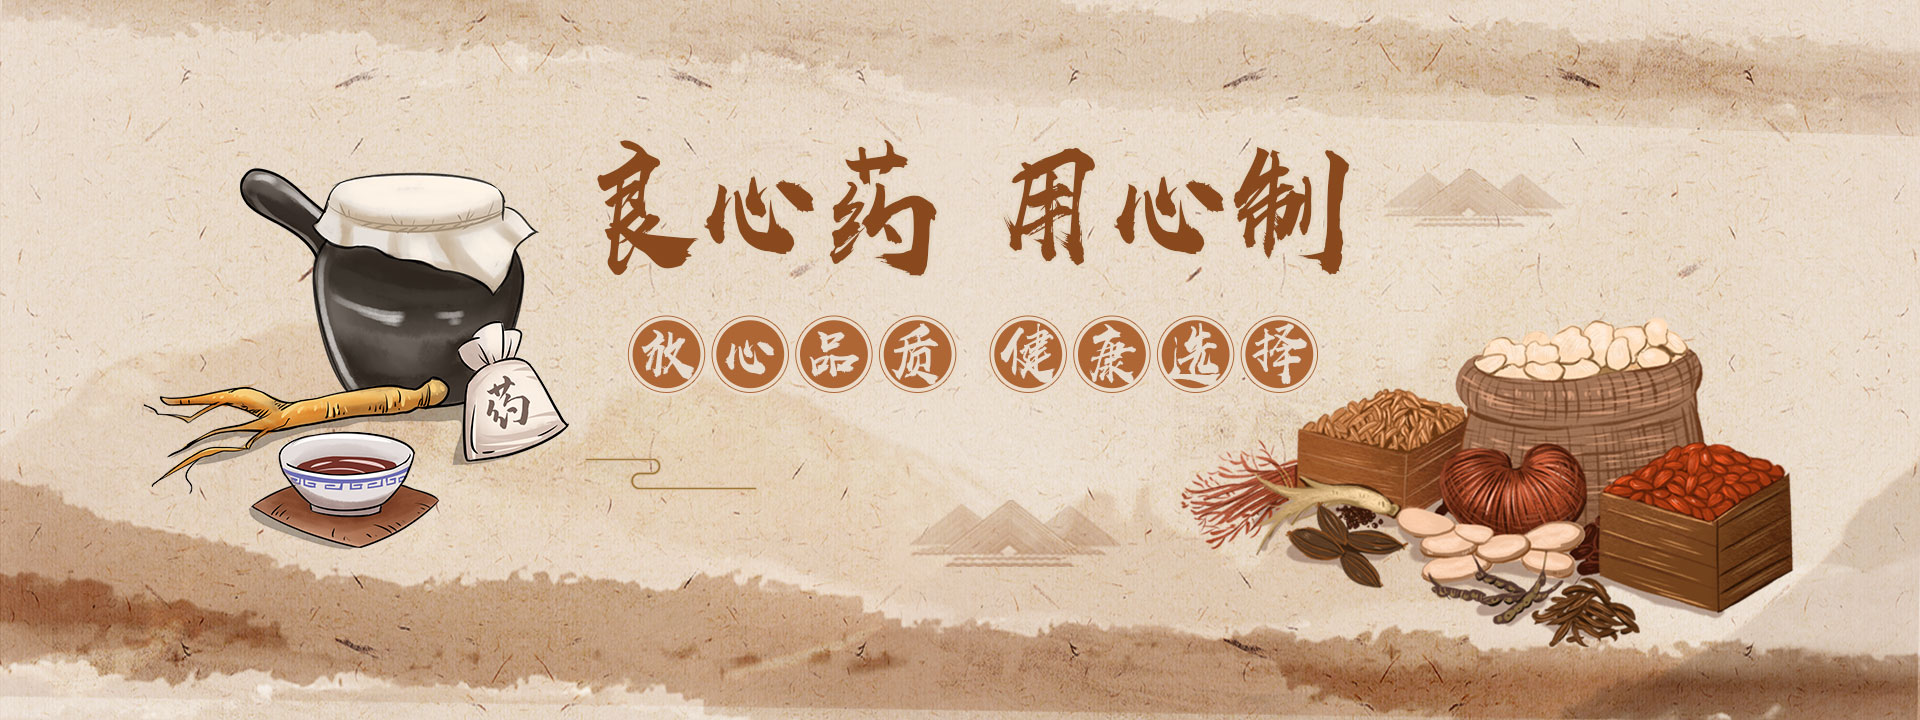 良心药 用心制
放心品质 健康选择
药